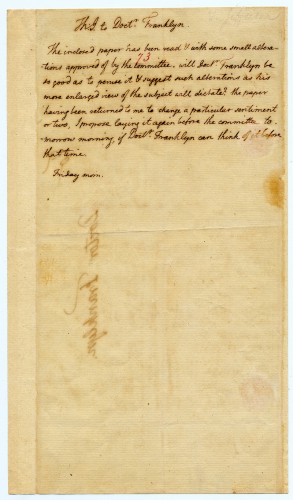 Th. J. to Doctr. Franklyn
The inclosed paper has been read & with some small altera-
tions approved of by the committee. will Doctr. Franklyn be
so good as to peruse it & suggest such alterations as his
more enlarged view of the subject will dictate? the paper
having been returned to me to change a particular sentiment
or two, I propose laying it again before the committee to-
morrow morning, if Doctr. Franklyn can think of it before
that time.
Friday morn.